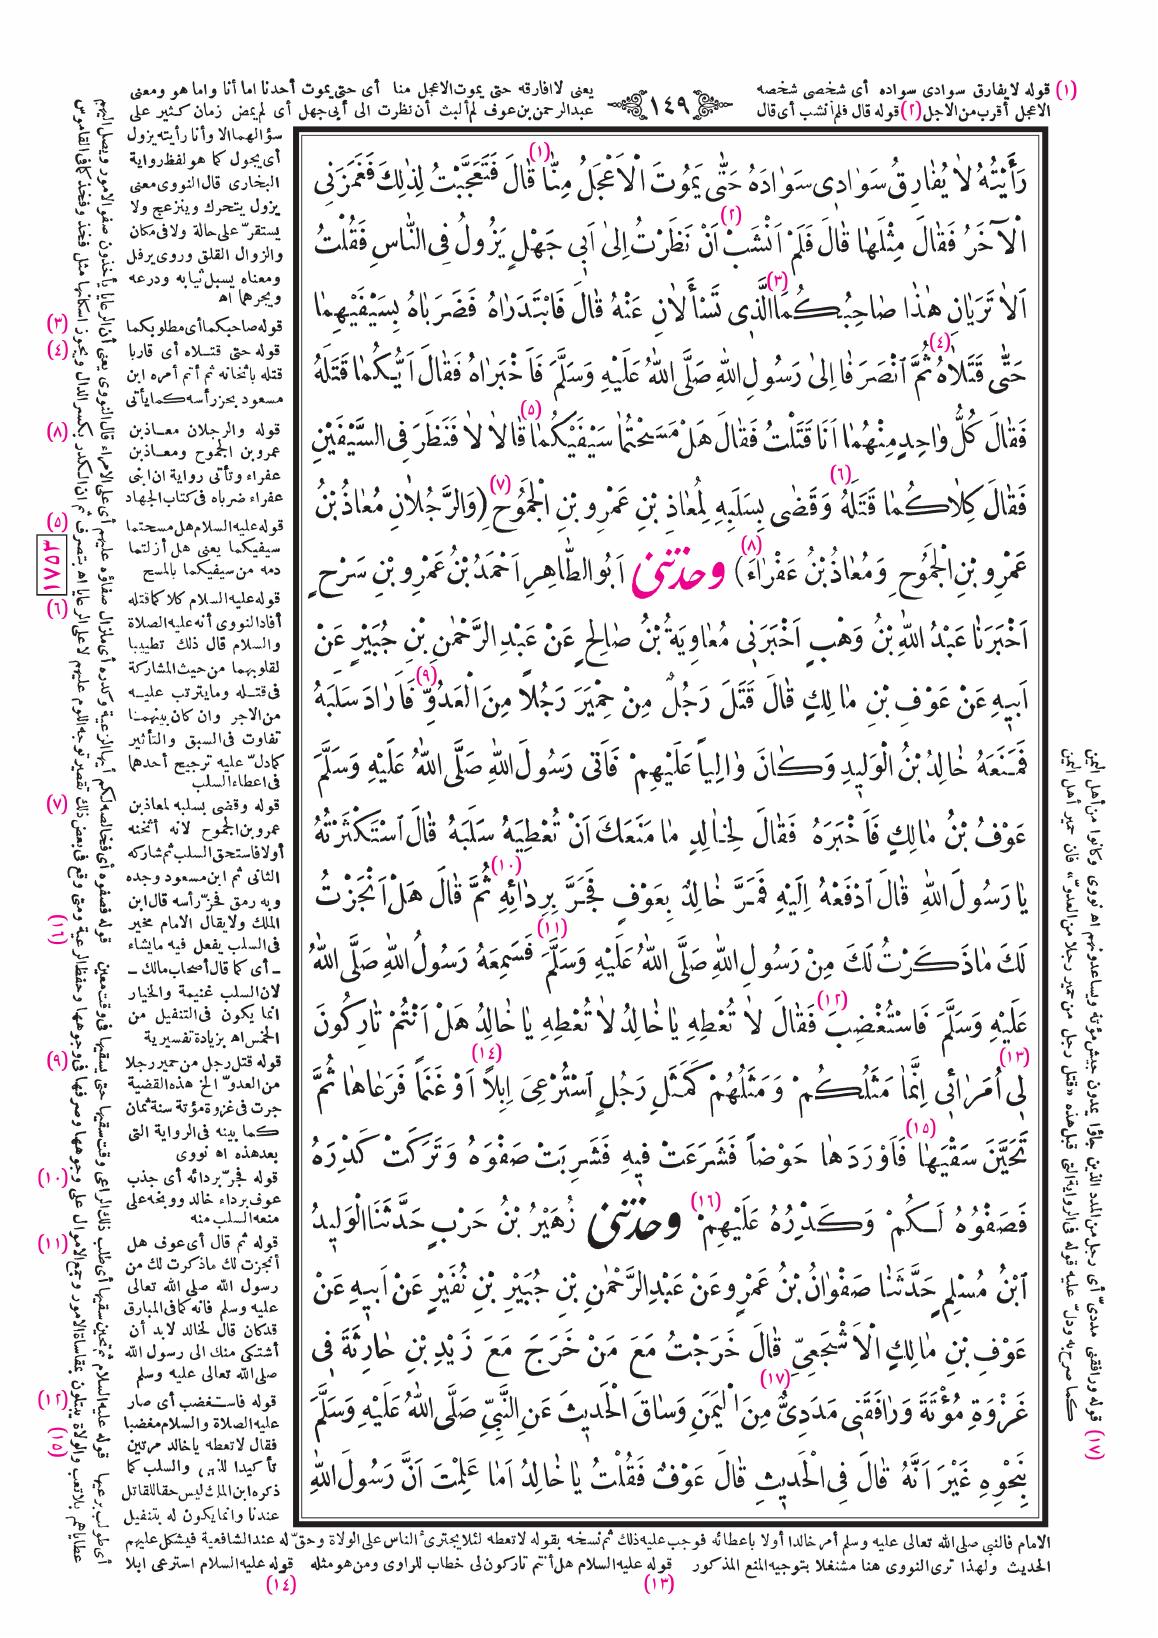 (١) قوله لا يفارق سوادى سواده أى شخصى شخصه
الاعجل أقرب من الاجل (٢) قوله قال فلم أنشب أى قال
١٤٩
يعنى لا افارقه حتى يموت الاعجل منا أى حتى يموت أحدنا اما أنا واما هو ومعنى
عبدالرحمن بن عوف لم ألبث أن نظرت الى أبى جهل أى لم يمض زمان كثير على
رَأَيْتُهُ لَا يُفَارِقُ سَوَادِى سَوَادَهُ حَتَّى يَمُوتَ الْاَعْجَلُ مِنَّا (١) قَالَ فَتَعَجَّبْتُ لِذٰلِكَ فَغَمَزَنِى
الْآخَرُ فَقَالَ مِثْلَهَا قَالَ فَلَمْ اَنْشَبْ (٢) اَنْ نَظَرْتُ اِلىٰ اَبِى جَهْلٍ يَزُولُ فِى النَّاسِ فَقُلْتُ
اَلَا تَرَيَانِ هٰذَا صَاحِبُكُمَا (٣) الَّذِى تَسْأَلَانِ عَنْهُ قَالَ فَابْتَدَرَاهُ فَضَرَبَاهُ بِسَيْفَيْهِمَا
حَتَّى قَتَلَاهُ (٤) ثُمَّ انْصَرَفَا اِلىٰ رَسُولِ اللهِ صَلَّى اللهُ عَلَيْهِ وَسَلَّمَ فَاَخْبَرَاهُ فَقَالَ اَيُّكُمَا قَتَلَهُ
فَقَالَ كُلُّ وَاحِدٍ مِنْهُمَا اَنَا قَتَلْتُ فَقَالَ هَلْ مَسَحْتُمَا سَيْفَيْكُمَا (٥) قَالَا لَا فَنَظَرَ فِى السَّيْفَيْنِ
فَقَالَ كِلَاكُمَا قَتَلَهُ (٦) وَقَضٰى بِسَلَبِهِ لِمُعَاذِ بْنِ عَمْرِو بْنِ الْجَمُوحِ (٧) (وَالرَّجُلَانِ مُعَاذُ بْنُ
عَمْرِو بْنِ الْجَمُوحِ وَمُعَاذُ بْنُ عَفْرَاءَ) (٨) وحدثنى اَبُو الطَّاهِرِ اَحْمَدُ بْنُ عَمْرِو بْنِ سَرْحٍ
اَخْبَرَنَا عَبْدُ اللهِ بْنُ وَهْبٍ اَخْبَرَنِى مُعَاوِيَةُ بْنُ صَالِحٍ عَنْ عَبْدِ الرَّحْمٰنِ بْنِ جُبَيْرٍ عَنْ
اَبِيهِ عَنْ عَوْفِ بْنِ مَالِكٍ قَالَ قَتَلَ رَجُلٌ مِنْ حِمْيَرَ رَجُلاً مِنَ الْعَدُوِّ (٩) فَاَرَادَ سَلَبَهُ
فَمَنَعَهُ خَالِدُ بْنُ الْوَلِيدِ وَكَانَ وَالِياً عَلَيْهِمْ فَاَتٰى رَسُولَ اللهِ صَلَّى اللهُ عَلَيْهِ وَسَلَّمَ
عَوْفُ بْنُ مَالِكٍ فَاَخْبَرَهُ فَقَالَ لِخَالِدٍ مَا مَنَعَكَ اَنْ تُعْطِيَهُ سَلَبَهُ قَالَ اسْتَكْثَرْتُهُ
يَا رَسُولَ اللهِ قَالَ ادْفَعْهُ اِلَيْهِ فَمَرَّ خَالِدٌ بِعَوْفٍ فَجَرَّ بِرِدَائِهِ (١٠) ثُمَّ قَالَ هَلْ اَنْجَزْتُ
لَكَ مَاذَكَرْتُ لَكَ مِنْ رَسُولِ اللهِ صَلَّى اللهُ عَلَيْهِ وَسَلَّمَ (١١) فَسَمِعَهُ رَسُولُ اللهِ صَلَّى اللهُ
عَلَيْهِ وَسَلَّمَ فَاسْتُغْضِبَ (١٢) فَقَالَ لَا تُعْطِهِ يَا خَالِدُ لَا تُعْطِهِ يَا خَالِدُ هَلْ اَنْتُمْ تَارِكُونَ
لِى اُمَرَائِى (١٣) اِنَّمَا مَثَلُكُمْ وَمَثَلُهُمْ كَمَثَلِ رَجُلٍ اسْتُرْعِىَ اِبِلاً (١٤) اَوْ غَنَماً فَرَعَاهَا ثُمَّ
تَحَيَّنَ سَقْيَهَا (١٥) فَاَوْرَدَهَا حَوْضاً فَشَرَعَتْ فِيهِ فَشَرِبَتْ صَفْوَهُ وَتَرَكَتْ كَدِرَهُ
فَصَفْوُهُ لَكُمْ وَكَدِرُهُ عَلَيْهِمْ (١٦) وحدثنى زُهَيْرُ بْنُ حَرْبٍ حَدَّثَنَا الْوَلِيدُ
ابْنُ مُسْلِمٍ حَدَّثَنَا صَفْوَانُ بْنُ عَمْرٍو عَنْ عَبْدِ الرَّحْمٰنِ بْنِ جُبَيْرِ بْنِ نُفَيْرٍ عَنْ اَبِيهِ عَنْ
عَوْفِ بْنِ مَالِكٍ الْاَشْجَعِىِّ قَالَ خَرَجْتُ مَعَ مَنْ خَرَجَ مَعَ زَيْدِ بْنِ حَارِثَةَ فِى
غَزْوَةِ مُؤْتَةَ وَرَافَقَنِى مَدَدِىٌّ مِنَ الْيَمَنِ (١٧) وَسَاقَ الْحَدِيثَ عَنِ النَّبِىِّ صَلَّى اللهُ عَلَيْهِ وَسَلَّمَ
بِنَحْوِهِ غَيْرَ اَنَّهُ قَالَ فِى الْحَدِيثِ قَالَ عَوْفٌ فَقُلْتُ يَا خَالِدُ اَمَا عَلِمْتَ اَنَّ رَسُولَ اللهِ
سؤالهما الا وأنا رأيته يزول
أى يجول كما هو لفظ رواية
البخارى قال النووى معنى
يزول يتحرك وينزعج ولا
يستقرّ على حالة ولا فى مكان
والزوال القلق وروى يرفل
ومعناه يسبل ثيابه ودرعه
ويجرهما اه
(٣) قوله صاحبكما أى مطلوبكما
(٤) قوله حتى قتلاه أى قاربا
قتله باثخانه ثم أتم أمره ابن
مسعود بحز رأسه كما يأتى
(٨) قوله والرجلان معاذ بن
عمرو بن الجموح ومعاذ بن
عفراء وتأتى رواية ان ابنى
عفراء ضرباه فى كتاب الجهاد
(٥) قوله عليه السلام هل مسحتما
سيفيكما يعنى هل أزلتما
دمه من سيفيكما بالمسح
٣٥٨١
(٦) قوله عليه السلام كلاكما قتله
أفاد النووى أنه عليه الصلاة
والسلام قال ذلك تطييبا
لقلوبهما من حيث المشاركة
فى قتله ومايترتب عليه
من الاجر وان كان بينهما
تفاوت فى السبق والتأثير
كما دلّ عليه ترجيح أحدهما
فى اعطاء السلب
(٧) قوله وقضى بسلبه لمعاذ بن
عمرو بن الجموح لانه أثخنه
أولا فاستحق السلب ثم شاركه
الثانى ثم ابن مسعود وجده
وبه رمق فحزّ رأسه قال ابن
الملك ولا يقال الامام مخير
فى السلب يفعل فيه مايشاء
ـ أى كما قال أصحاب مالك ـ
لان السلب غنيمة والخيار
انما يكون فى التنفيل من
الخمس اه بزيادة تفسيرية
(٩) قوله قتل رجل من حمير رجلا
من العدوّ الخ هذه القضية
جرت فى غزوة مؤتة سنة ثمان
كما بينه فى الرواية التى
بعد هذه اه نووى
(١٠) قوله فجرّ بردائه أى جذب
عوف برداء خالد ووبخه على
منعه السلب منه
(١١) قوله ثم قال أى عوف هل
أنجزت لك ماذكرت لك من
رسول الله صلى الله تعالى
عليه وسلم فانه كما فى المبارق
قد كان قال لخالد لا بد أن
أشتكى منك الى رسول الله
صلى الله تعالى عليه وسلم
(١٢) قوله فاستغضب أى صار
عليه الصلاة والسلام مغضبا
فقال لا تعطه يا خالد مرتين
تأكيدا والسلب كما
ذكره ابن الملك ليس حقا للقاتل
عندنا وانما يكون له بتنفيل
الامام فالنبي صلى الله تعالى عليه وسلم أمر خالدا أولا باعطائه فوجب عليه ذلك ثم نسخه بقوله لا تعطه لئلا يجترئ الناس على الولاة وحقّ له عند الشافعية فيشكل عليهم
الحديث ولهذا ترى النووى هنا مشتغلا بتوجيه المنع المذكور (١٣) قوله عليه السلام هل أنتم تاركون لى خطاب للراوى ومن هو مثله (١٤) قوله عليه السلام استرعى ابلا
أى طولب برعيها (١٥) قوله عليه السلام ثم تحين سقيها أى طلب ذلك الراعى وقت سقيها حتى يسقيها فى وقت معين (١٦) قوله فصفوه أى فخالصه لكم
(١٧) قوله ورافقنى مددىّ أى رجل من المدد الذين جاؤا يمدون جيش مؤتة ويساعدونهم اه نووى وكانوا من أهل اليمن
كما صرح به ودلّ عليه قوله فى الرواية التى قبل هذه «قتل رجل من حمير رجلا من العدوّ» فان حمير أهل اليمن